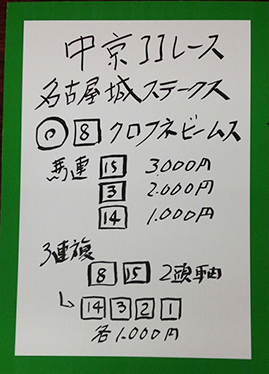 中京11レース
名古屋城ステークス
◎ 8 クロフネビームス
馬連 15 3.000円
3 2.000円
14 1.000円
3連複
8 15 2頭軸
↳ 14 3 2 1
各1.000円